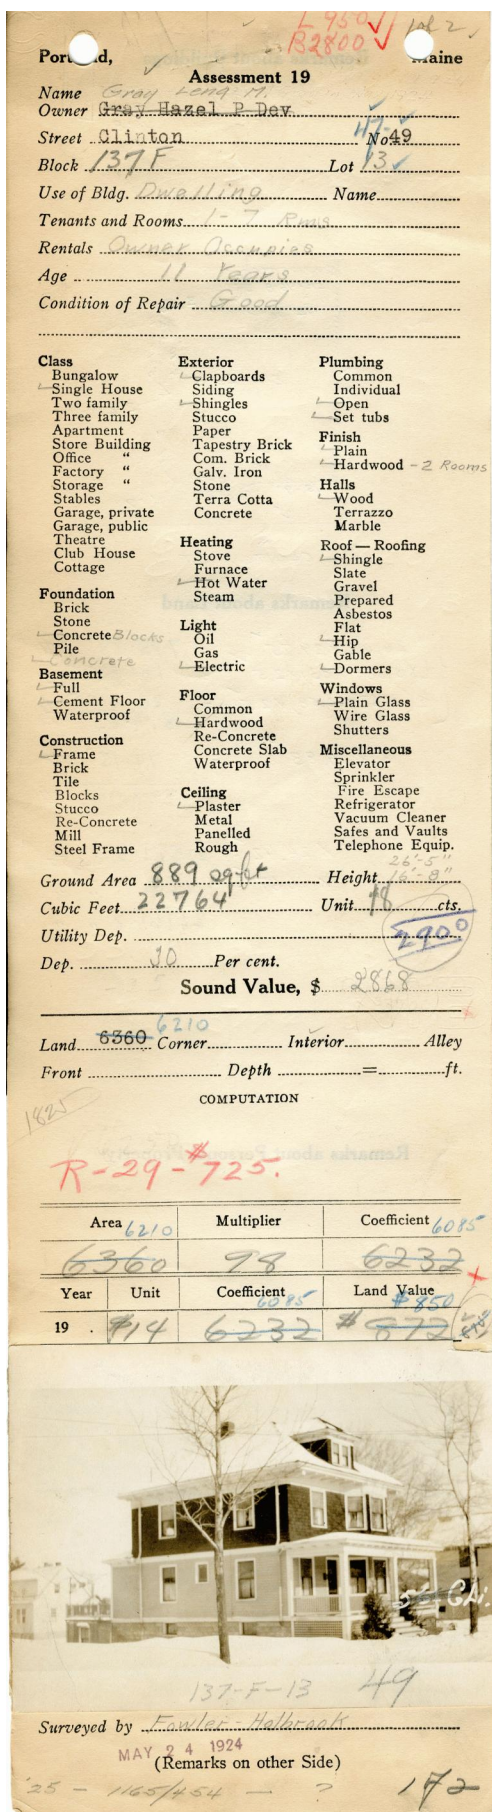 L 950 1 of 2
B2800
Portland, Maine
Assessment 19
Name Gray Lena M.
Owner Gray Hazel P Dev
47-
Street Clinton No 49
Block 137 F Lot 13
Use of Bldg. Dwelling Name
Tenants and Rooms 1 - 7 Rms
Rentals Owner Occupies
Age 11 Years
Condition of Repair Good
Class
Bungalow
Single House
Two family
Three family
Apartment
Store Building
Office "
Factory "
Storage "
Stables
Garage, private
Garage, public
Theatre
Club House
Cottage
Foundation
Brick
Stone
Concrete Blocks
Pile
Concrete
Basement
Full
Cement Floor
Waterproof
Construction
Frame
Brick
Tile
Blocks
Stucco
Re-Concrete
Mill
Steel Frame
Exterior
Clapboards
Siding
Shingles
Stucco
Paper
Tapestry Brick
Com. Brick
Galv. Iron
Stone
Terra Cotta
Concrete
Heating
Stove
Furnace
Hot Water
Steam
Light
Oil
Gas
Electric
Floor
Common
Hardwood
Re-Concrete
Concrete Slab
Waterproof
Ceiling
Plaster
Metal
Panelled
Rough
Plumbing
Common
Individual
Open
Set tubs
Finish
Plain
Hardwood - 2 Rooms
Halls
Wood
Terrazzo
Marble
Roof — Roofing
Shingle
Slate
Gravel
Prepared
Asbestos
Flat
Hip
Gable
Dormers
Windows
Plain Glass
Wire Glass
Shutters
Miscellaneous
Elevator
Sprinkler
Fire Escape
Refrigerator
Vacuum Cleaner
Safes and Vaults
Telephone Equip.
26'-5"
Ground Area 889 sq ft Height 16'-8"
Cubic Feet 22764 Unit 18 cts.
2900
Utility Dep.
Dep. 30 Per cent.
Sound Value, $ 2868
6210
Land 6360 Corner Interior Alley
Front Depth = ft.
1825
COMPUTATION
R-29-$725.
Area 6210 Multiplier Coefficient 6085
6360 98 6232
Year Unit Coefficient 6085 Land Value $850
19 . $14 6232 $872
Cli.
137-F-13 49
Surveyed by Fowler-Holbrook
MAY 24 1924
(Remarks on other Side)
'25 - 1165/454 - ? 172